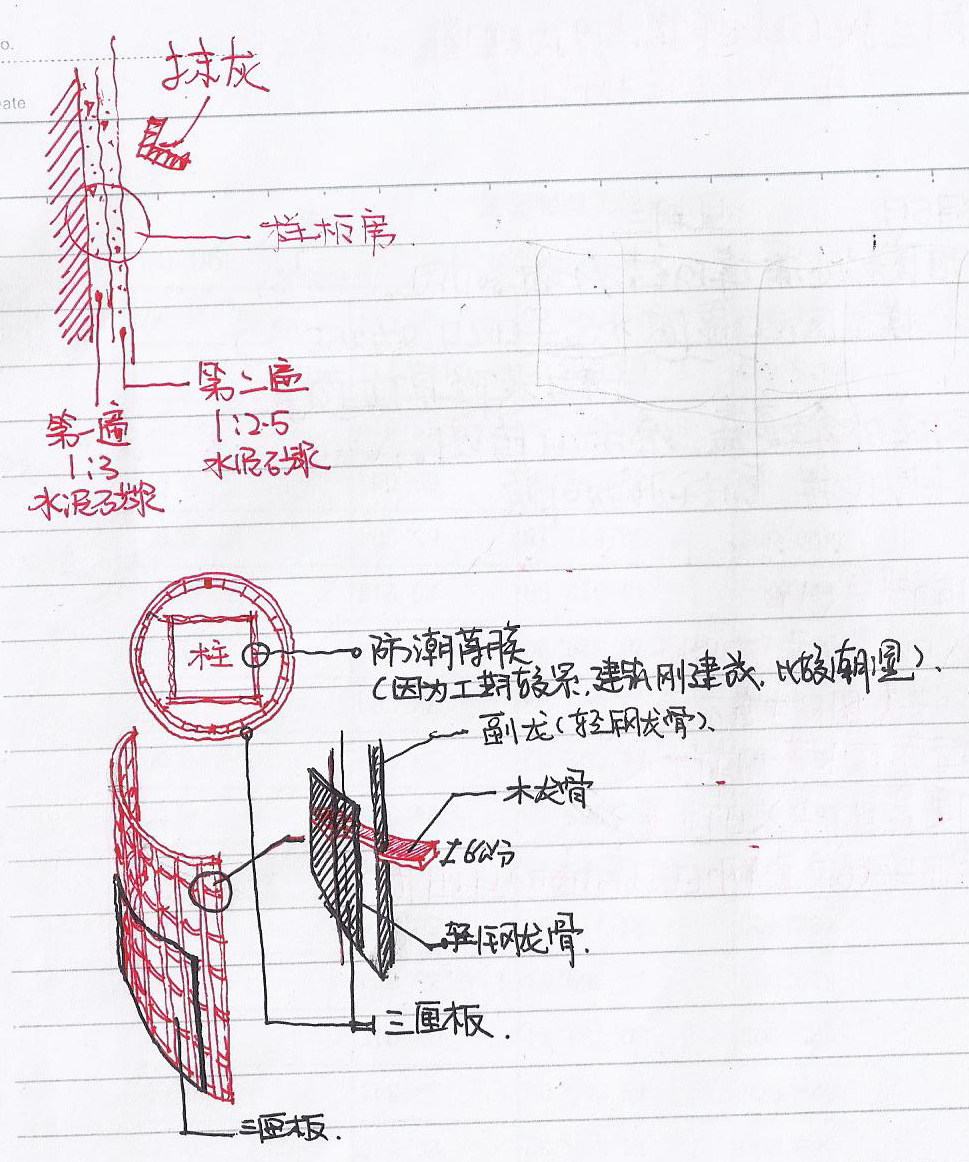 o.
eate
抹灰
样板房
第二遍
1:2.5
水泥砂浆
第一遍
1:3
水泥砂浆
柱
防潮薄膜
(因为工期较紧,建筑刚建成,比较潮湿).
副龙(轻钢龙骨).
木龙骨
轻钢龙骨.
三厘板.
三厘板.